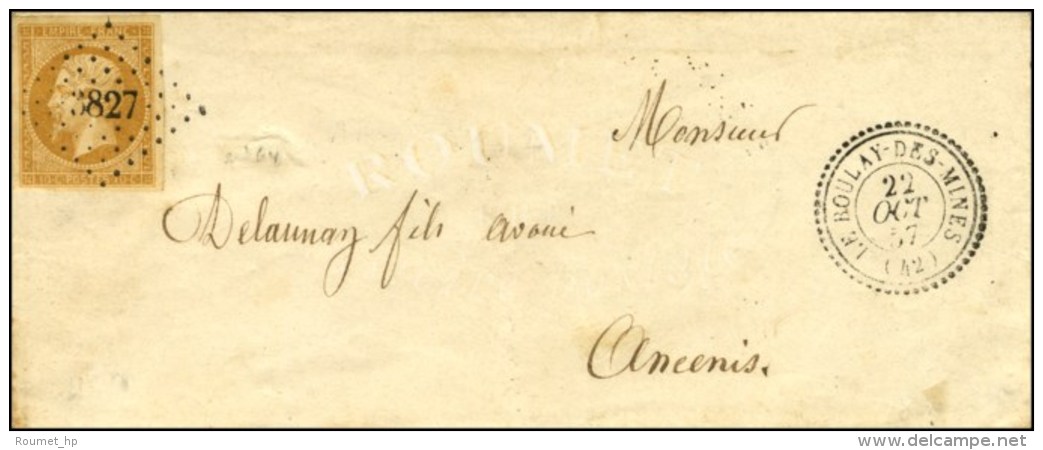 EMPIRE FRANC
3827
10 C. POSTES 10 C.
Monsieur
Delaunay fils avoué
Ancenis.
LE ROULAY-DES-MINES (42)
22
OCT
57
Roumet_hp
www.delcampe.net